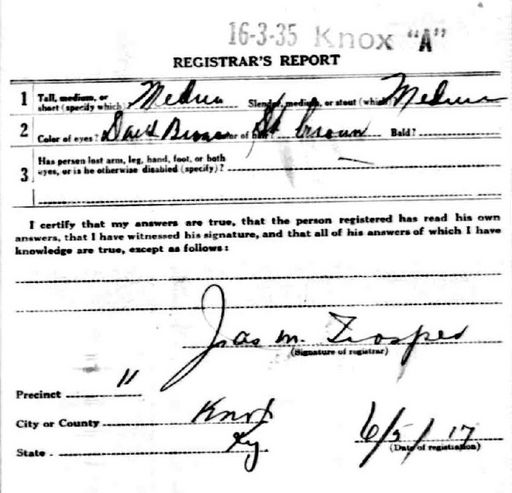 16-3-35 Knox "A"
REGISTRAR'S REPORT
1 Tall, medium, or short (specify which) Medium Slender, medium, or stout (which) Medium
2 Color of eyes? Brown Color of hair? brown Bald?
3 Has person lost arm, leg, hand, foot, or both
eyes, or is he otherwise disabled (specify)?
I certify that my answers are true, that the person registered has read his own
answers, that I have witnessed his signature, and that all of his answers of which I have
knowledge are true, except as follows:
Jas M. Trosper
(Signature of registrar)
Precinct "
City or County Knox
State Ky
6/5/17
(Date of registration)